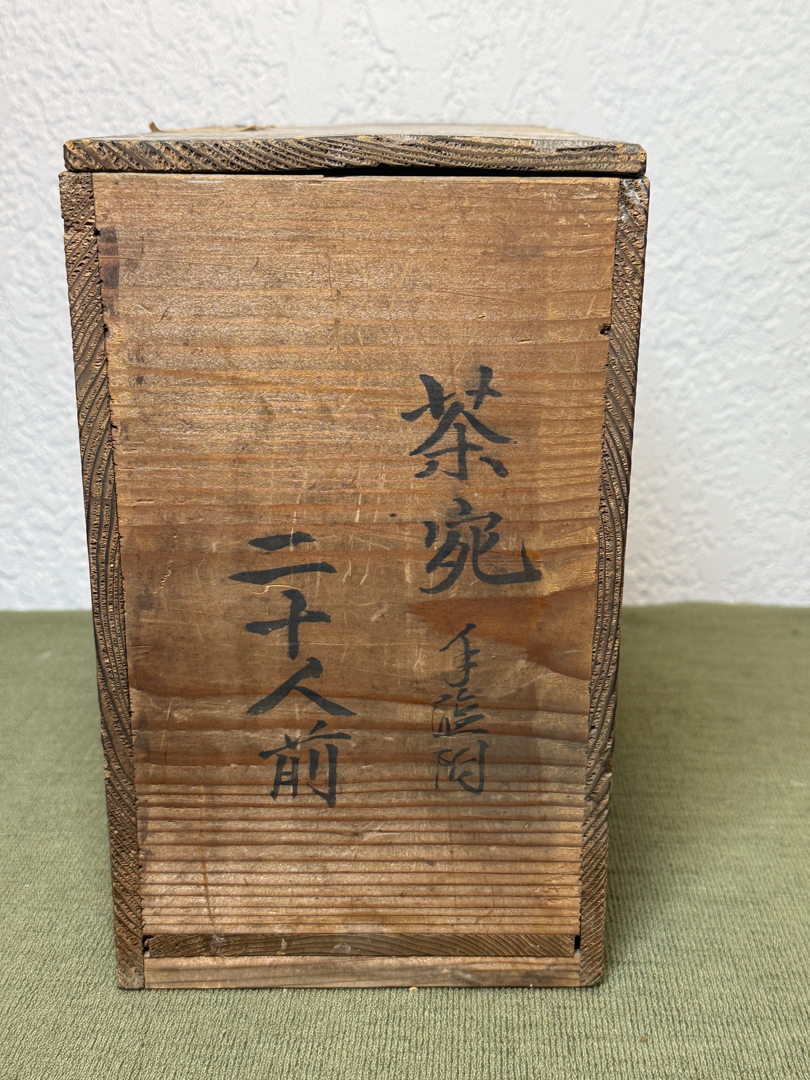 茶宛 手塩附
二十人前